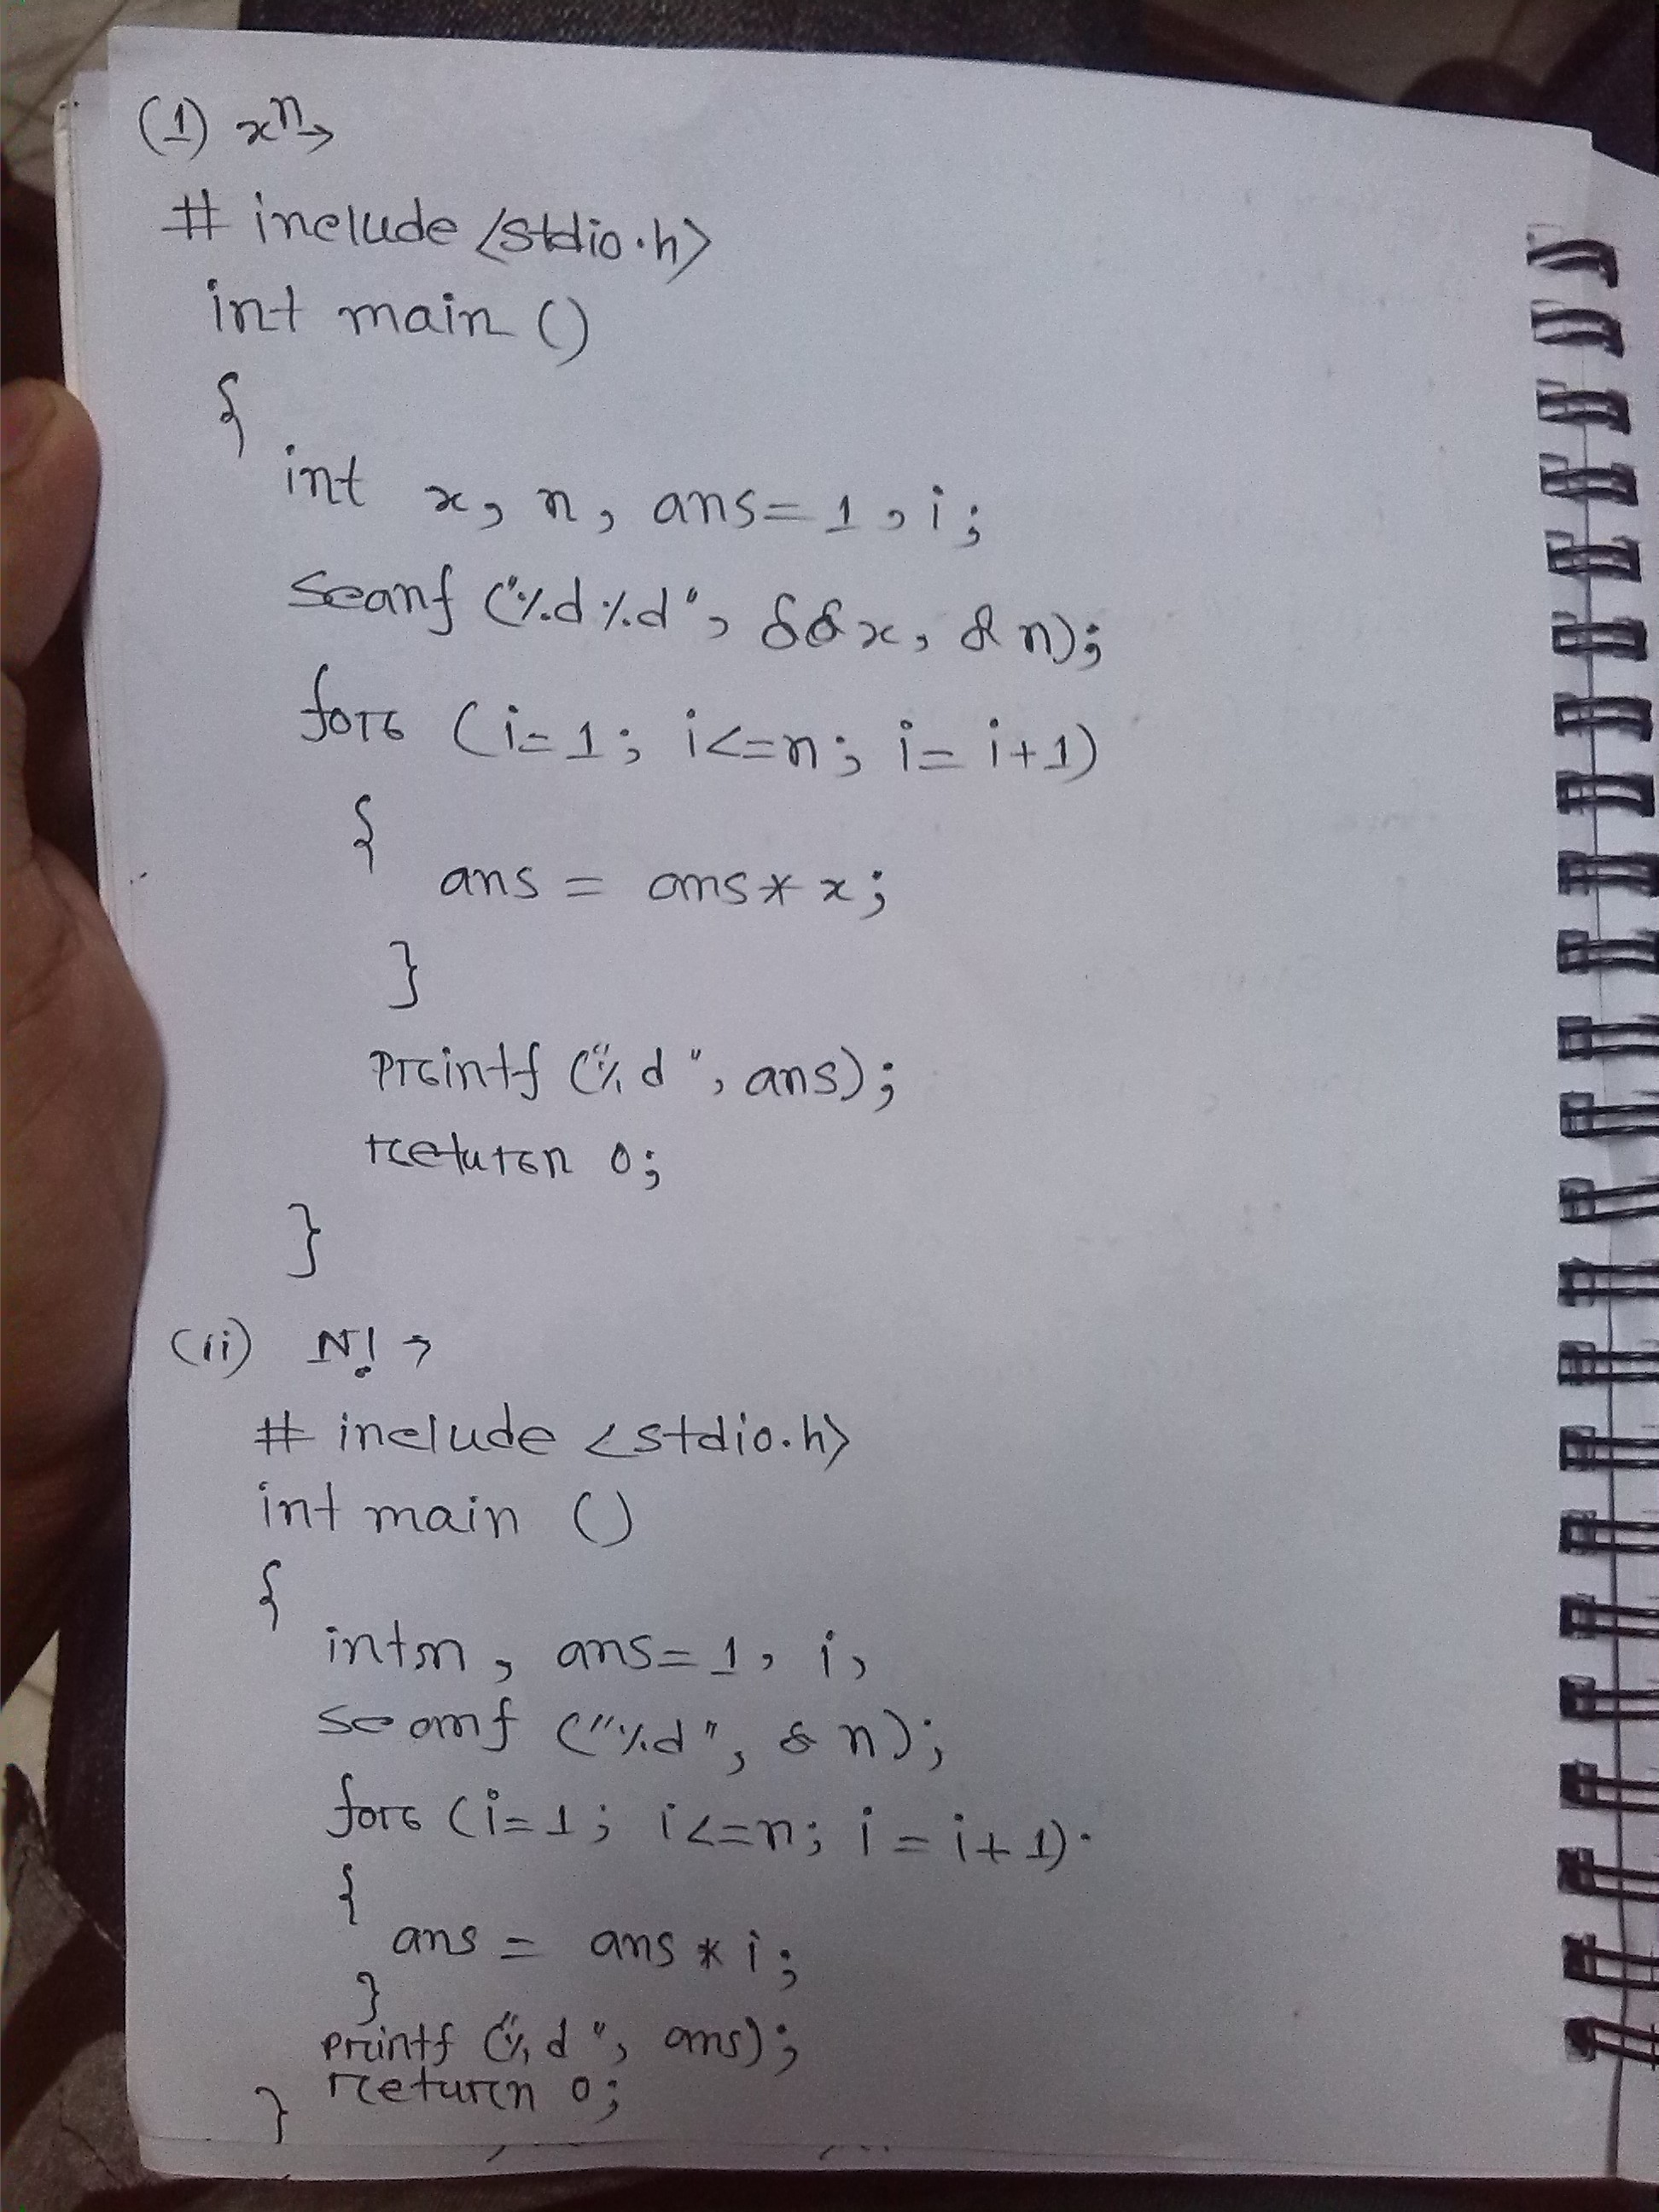 (1) xⁿ→
# include <stdio.h>
int main ()
{
int x, n, ans=1, i;
scanf ("%d%d", &&x, &n);
for (i=1; i<=n; i= i+1)
{
ans = ans* x;
}
printf ("%d", ans);
return 0;
}
(ii) N! →
# include <stdio.h>
int main ()
{
int n, ans=1, i,
scanf ("%d", &n);
for (i=1; i<=n; i = i+1)
{
ans = ans * i;
}
printf ("%d", ans);
return 0;
}